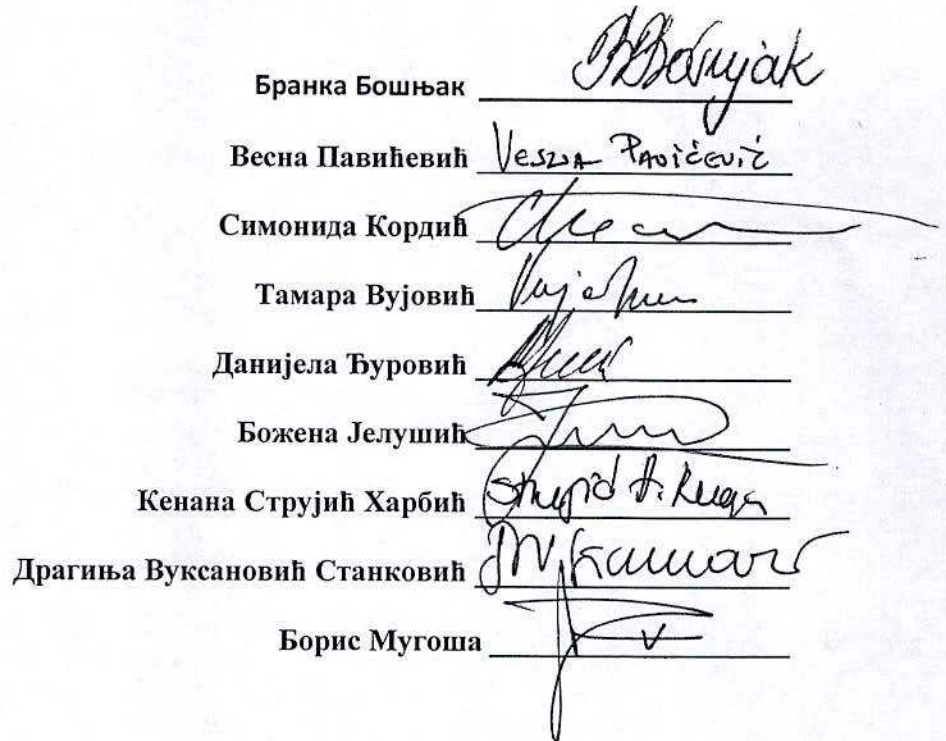 Бранка Бошњак BBošnjak
Весна Павићевић Vesna Pavićević
Симонида Кордић
Тамара Вујовић
Данијела Ђуровић
Божена Јелушић
Кенана Струјић Харбић
Драгиња Вуксановић Станковић
Борис Мугоша